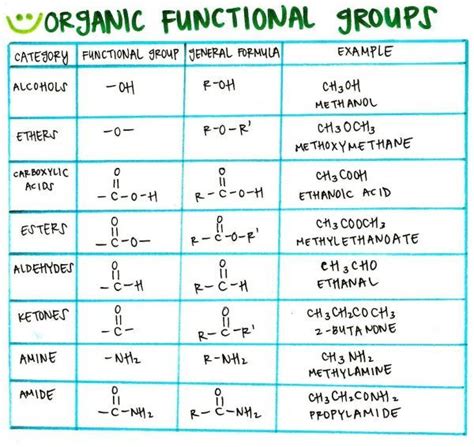 ORGANIC FUNCTIONAL GROUPS
CATEGORY FUNCTIONAL GROUP GENERAL FORMULA EXAMPLE
ALCOHOLS -OH R-OH CH₃OH
METHANOL
ETHERS -O- R-O-R' CH₃OCH₃
METHOXYMETHANE
CARBOXYLIC ACIDS O || -C-O-H O || R-C-O-H CH₃COOH
ETHANOIC ACID
ESTERS O || -C-O- O || R-C-O-R' CH₃COOCH₃
METHYLETHANOATE
ALDEHYDES O || -C-H O || R-C-H CH₃CHO
ETHANAL
KETONES O || -C- O || R-C-R' CH₃CH₂COCH₃
2-BUTANONE
AMINE -NH₂ R-NH₂ CH₃NH₂
METHYLAMINE
AMIDE O || -C-NH₂ O || R-C-NH₂ CH₃CH₂CONH₂
PROPYLAMIDE